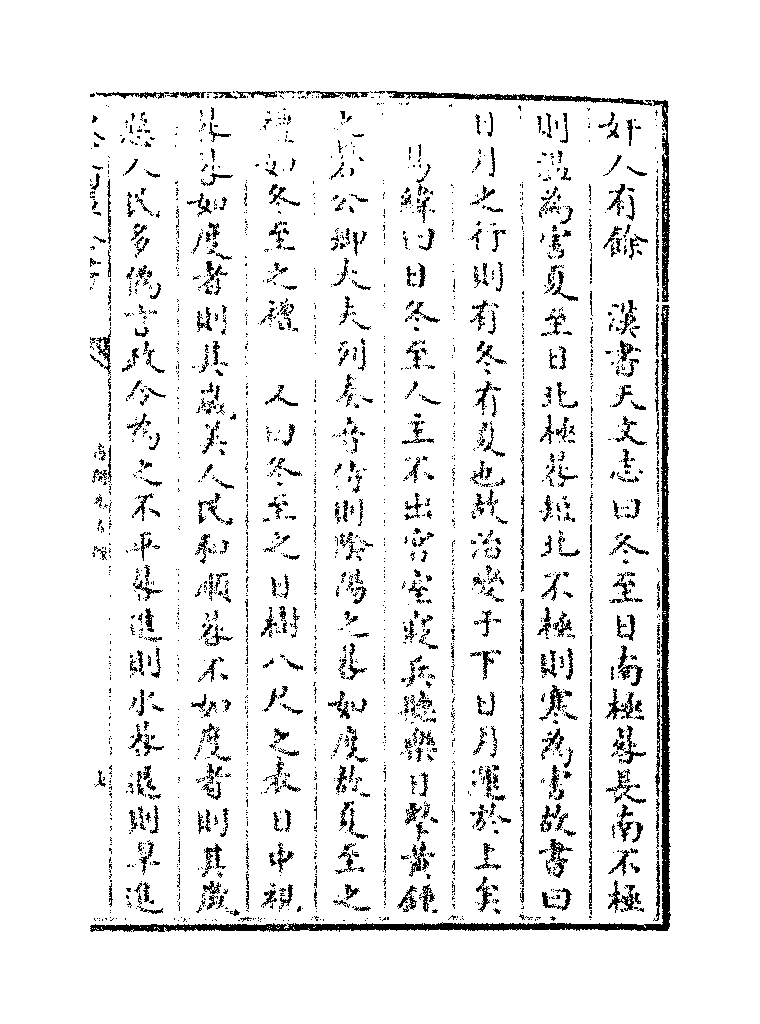 奸人有餘　漢書天文志曰冬至日南極晷長南不極
則溫為害夏至日北極晷短北不極則寒為害故書曰
日月之行則有冬有夏也故治變于下日月運於上矣
易緯曰日冬至人主不出宮室寢兵聽樂日擊黃鍾
之公卿大夫列奏音倍則陰陽之晷如度故夏至之
禮如冬至之禮　又曰冬至之日樹八尺之表日中視
晷晷如度者則其歲美人民和順晷不如度者則其歲
惡人民多偽言政令為之不平晷進則水晷退則旱進